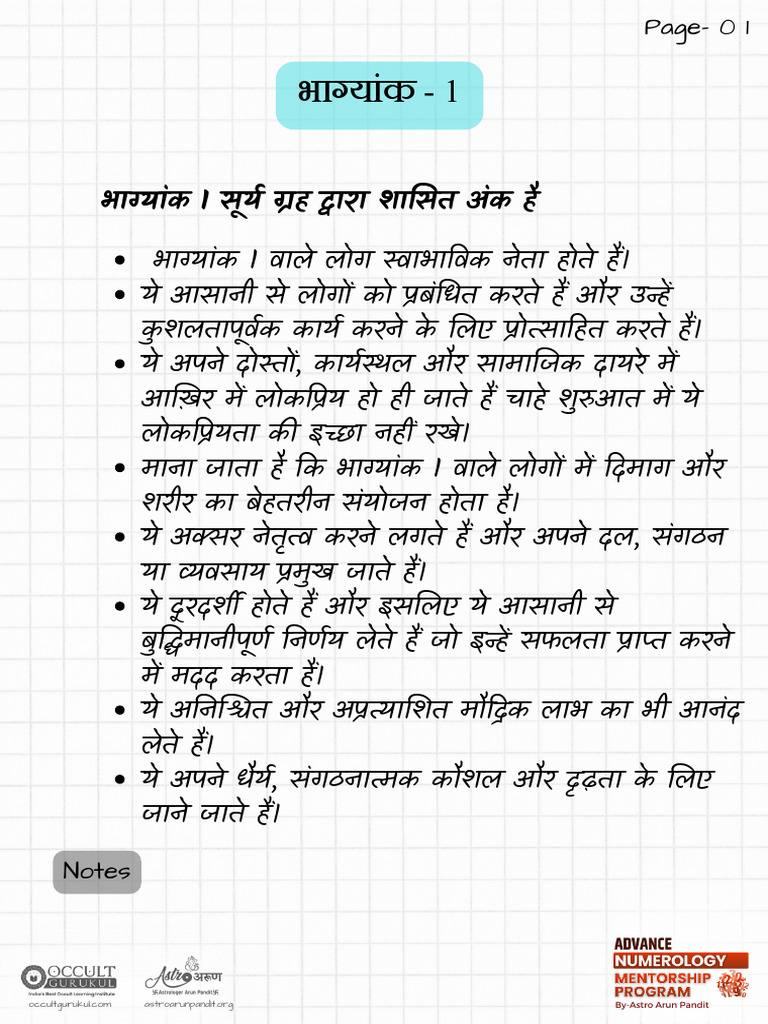 Page- 01
भाग्यांक - 1
भाग्यांक 1 सूर्य ग्रह द्वारा शासित अंक है
• भाग्यांक 1 वाले लोग स्वाभाविक नेता होते हैं।
• ये आसानी से लोगों को प्रबंधित करते हैं और उन्हें
कुशलतापूर्वक कार्य करने के लिए प्रोत्साहित करते हैं।
• ये अपने दोस्तों, कार्यस्थल और सामाजिक दायरे में
आख़िर में लोकप्रिय हो ही जाते हैं चाहे शुरुआत में ये
लोकप्रियता की इच्छा नहीं रखे।
• माना जाता है कि भाग्यांक 1 वाले लोगों में दिमाग और
शरीर का बेहतरीन संयोजन होता है।
• ये अक्सर नेतृत्व करने लगते हैं और अपने दल, संगठन
या व्यवसाय प्रमुख जाते हैं।
• ये दूरदर्शी होते हैं और इसलिए ये आसानी से
बुद्धिमानीपूर्ण निर्णय लेते हैं जो इन्हें सफलता प्राप्त करने
में मदद करता हैं।
• ये अनिश्चित और अप्रत्याशित मौद्रिक लाभ का भी आनंद
लेते हैं।
• ये अपने धैर्य, संगठनात्मक कौशल और दृढ़ता के लिए
जाने जाते हैं।
Notes
OCCULT
GURUKUL
India's Best Occult Learning Institute
occultgurukul.com
Astro अरुण
卐 Astrologer Arun Pandit 卐
astroarunpandit.org
ADVANCE
NUMEROLOGY
MENTORSHIP
PROGRAM
By-Astro Arun Pandit